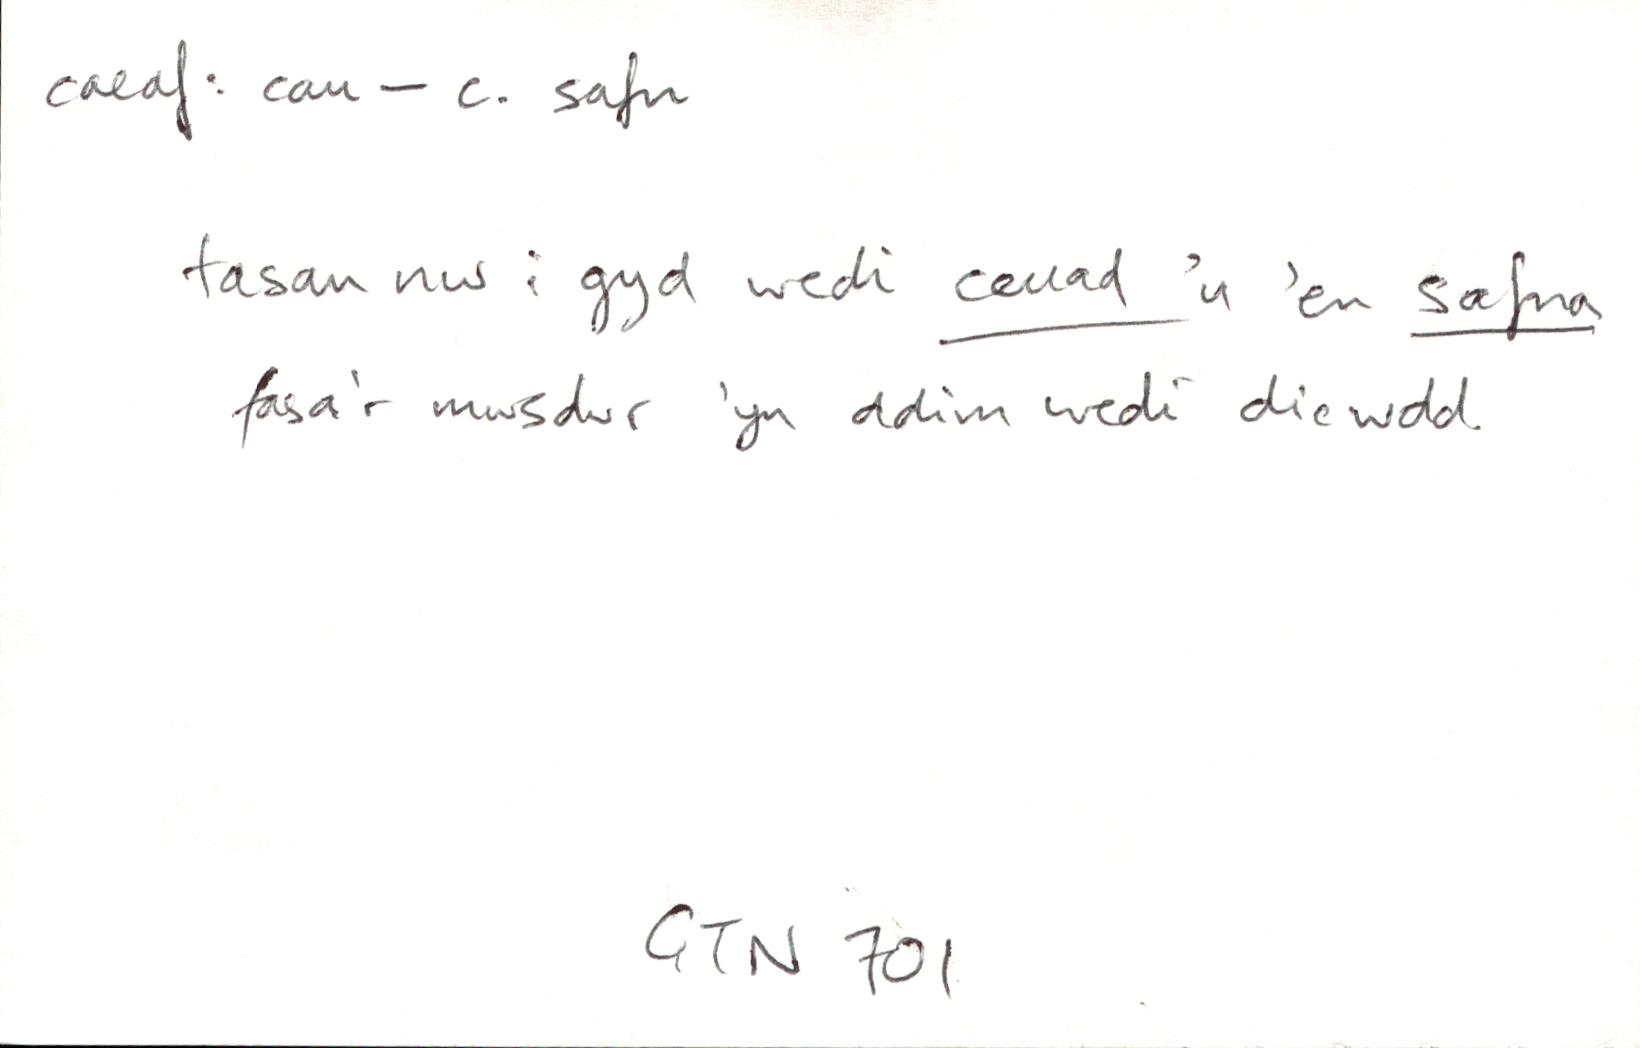 caeaf: cau – c. safn
tasan nw i gyd wedi ceuad 'u 'en safna
fasa'r mwsdwr 'yn ddim wedi dicwdd
GTN 701